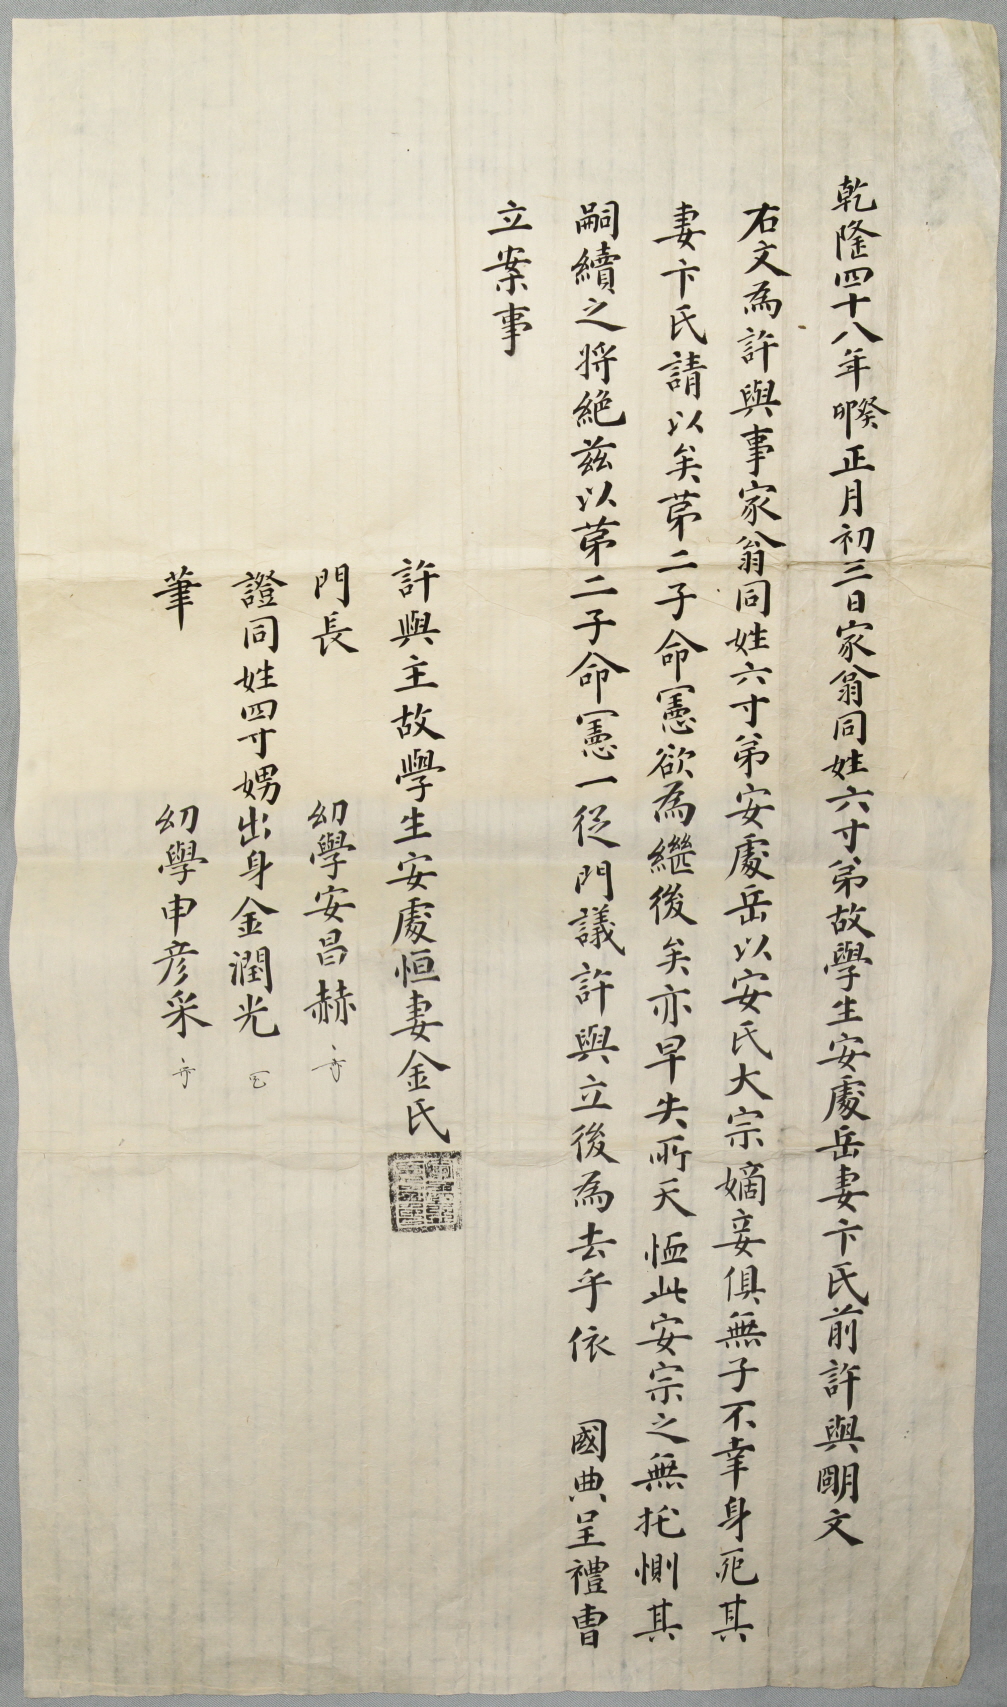 乾隆四十八年癸卯正月初三日家翁同姓六寸弟故學生安處岳妻卞氏前許與明文
右文為許與事家翁同姓六寸弟安處岳以安氏大宗嫡妾俱無子不幸身死其
妻卞氏請以矣苐二子命憲欲為繼後矣亦早失所天恤此安宗之無托惻其
嗣續之將絶茲以苐二子命憲一從門議許與立後為去乎依 國典呈禮曺
立案事
許與主故學生安處恒妻金氏
門長 幼學安昌赫
證同姓四寸娚出身金潤光
筆 幼學申彦采